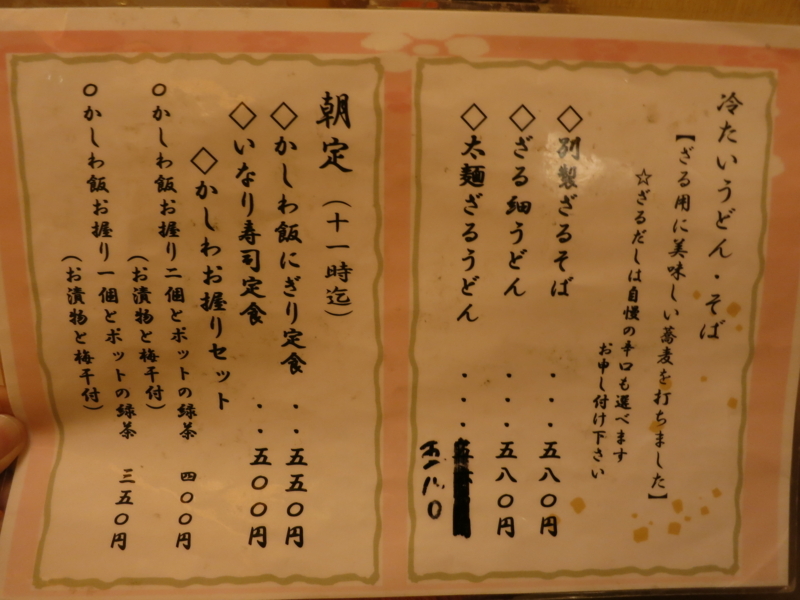 冷たいうどん・そば
【ざる用に美味しい蕎麦を打ちました】
☆ざるだしは自慢の辛口も選べます
お申し付け下さい
◇別製ざるそば ・・・五八〇円
◇ざる細うどん ・・・五八〇円
◇太麺ざるうどん ・・・
五八〇
朝定（十一時迄）
◇かしわ飯にぎり定食 ・・五五〇円
◇いなり寿司定食 ・・五〇〇円
◇かしわお握りセット
○かしわ飯お握り二個とポットの緑茶 四〇〇円
（お漬物と梅干付）
○かしわ飯お握り一個とポットの緑茶 三五〇円
（お漬物と梅干付）